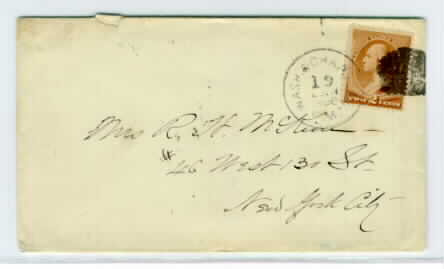 WASH. & CHAR
19
TWO 2 CENTS
Mrs R. H. McKim
46 West 130 St.
New York City